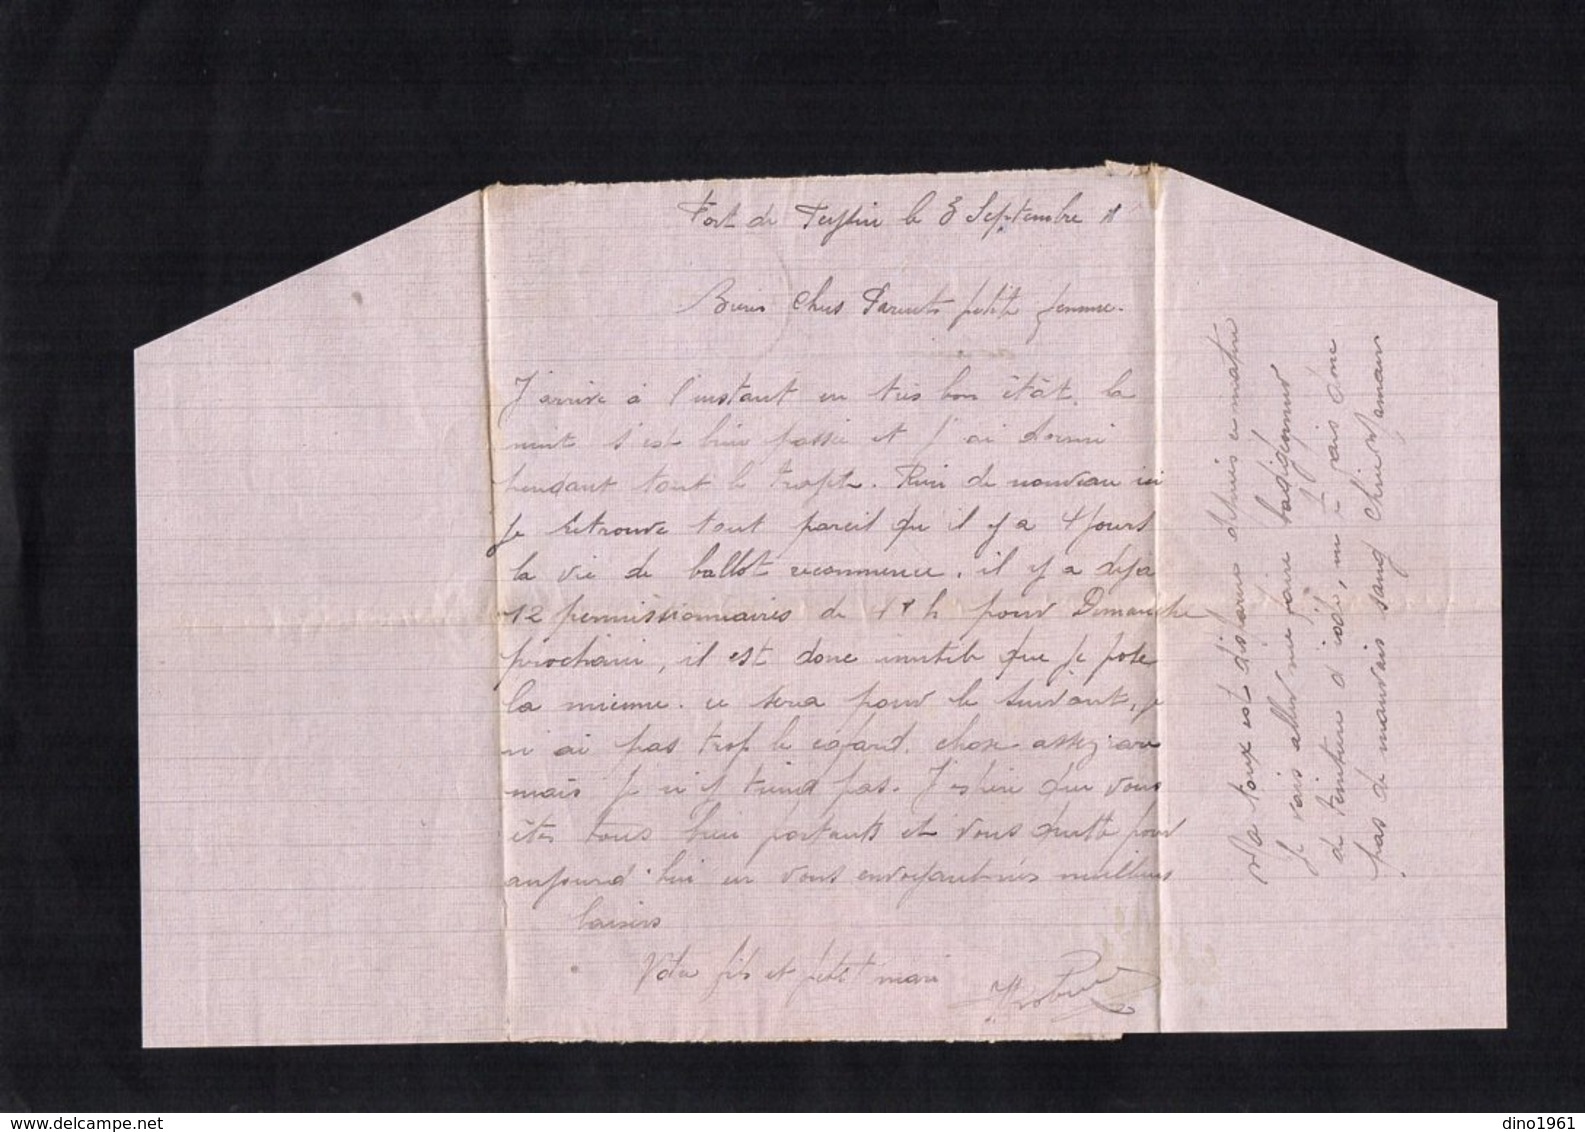 Fort de le 3 Septembre
Biens Chers Parents petite femme.
J'arrive à l'instant en très bon état. la
nuit s'est bien passée et j'ai dormi
pendant tout le trajet. Rien de nouveau ici
je retrouve tout pareil qu'il y a 4 jours
la vie de ballot recommence. il y a déjà
12 permissionnaires de 48 h pour Dimanche
prochain, il est donc inutile que je pose
la mienne. ce sera pour le suivant, je
n'ai pas trop le cafard. chose assez rare
mais je n'y tiend pas. J'espère que vous
êtes tous bien portants et vous quitte pour
aujourd'hui en vous envoyant mes meilleurs
baisers
Votre fils et petit mari
Ma toux est disparue depuis ce matin
je vais aller me faire badigeonner
de teinture d'iode, ne te fais donc
pas de mauvais sang chère Maman
dino1961